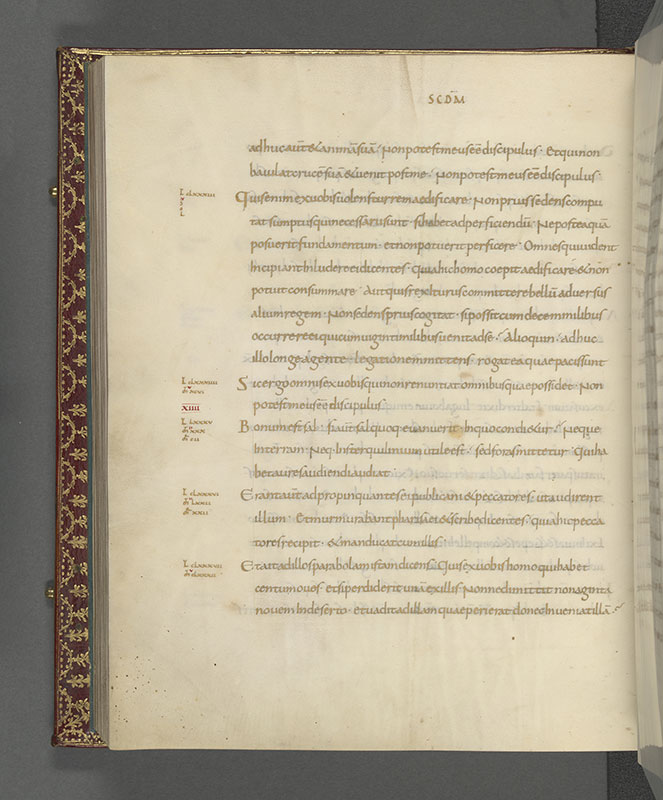 SCDM
adhuc aut & animā suā · Non potest meus eē discipulus · Et qui non
baiulat crucē suā & uenit post me · Non potest meus eē discipulus
Quis enim ex uobis uolens turrem aedificare · Non prius sedens compu
tat sumptus qui necessarii sunt · si habet ad perficiendū · Ne postea quā
posuerit fundamentum · et non potuerit perficere · Omnes qui uident
Incipiant inludere ei dicentes · Quia hic homo coepit aedificare & non
potuit consummare · Aut quis rex iturus committere bellū aduersus
alium regem · Non sedens prius cogitat · si possit cum decem milibus
occurrere ei qui cum uiginti milibus uenit ad se · Alioquin · adhuc
illo longe agente · legationem mittens · rogat ea quae pacis sunt
Sic ergo omnis ex uobis qui non renuntiat omnibus quae possidet · Non
XIIII
potest meus eē discipulus ·
Bonum est sal · si aūt sal quoq· euanuerit · In quo condi&ur · Neque
Interram · Neq· Insterquilinium utile est · sed foras mittetur · Qui ha
bet aures audiendi audiat
Erant aūt adpropinquantes ei publicani & peccatores · ut audirent
illum · Et murmurabant pharisaei & scribe dicentes · quia hic pecca
tores recipit · & manducat cum illis ·
Et ait ad illos parabolam istam dicens · Quis ex uobis homo qui habet
centum oues · et si perdiderit unā ex illis · Nonne dimittit nonaginta
nouem In deserto · et uadit ad illam quae perierat donec Inueniat illā